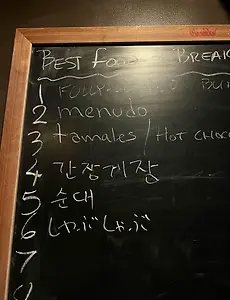 BEST FOOD BREAK
1
2 menudo
3 tamales / HOT CHOC
4 간장게장
5 순대
6 しゃぶしゃぶ
7
8